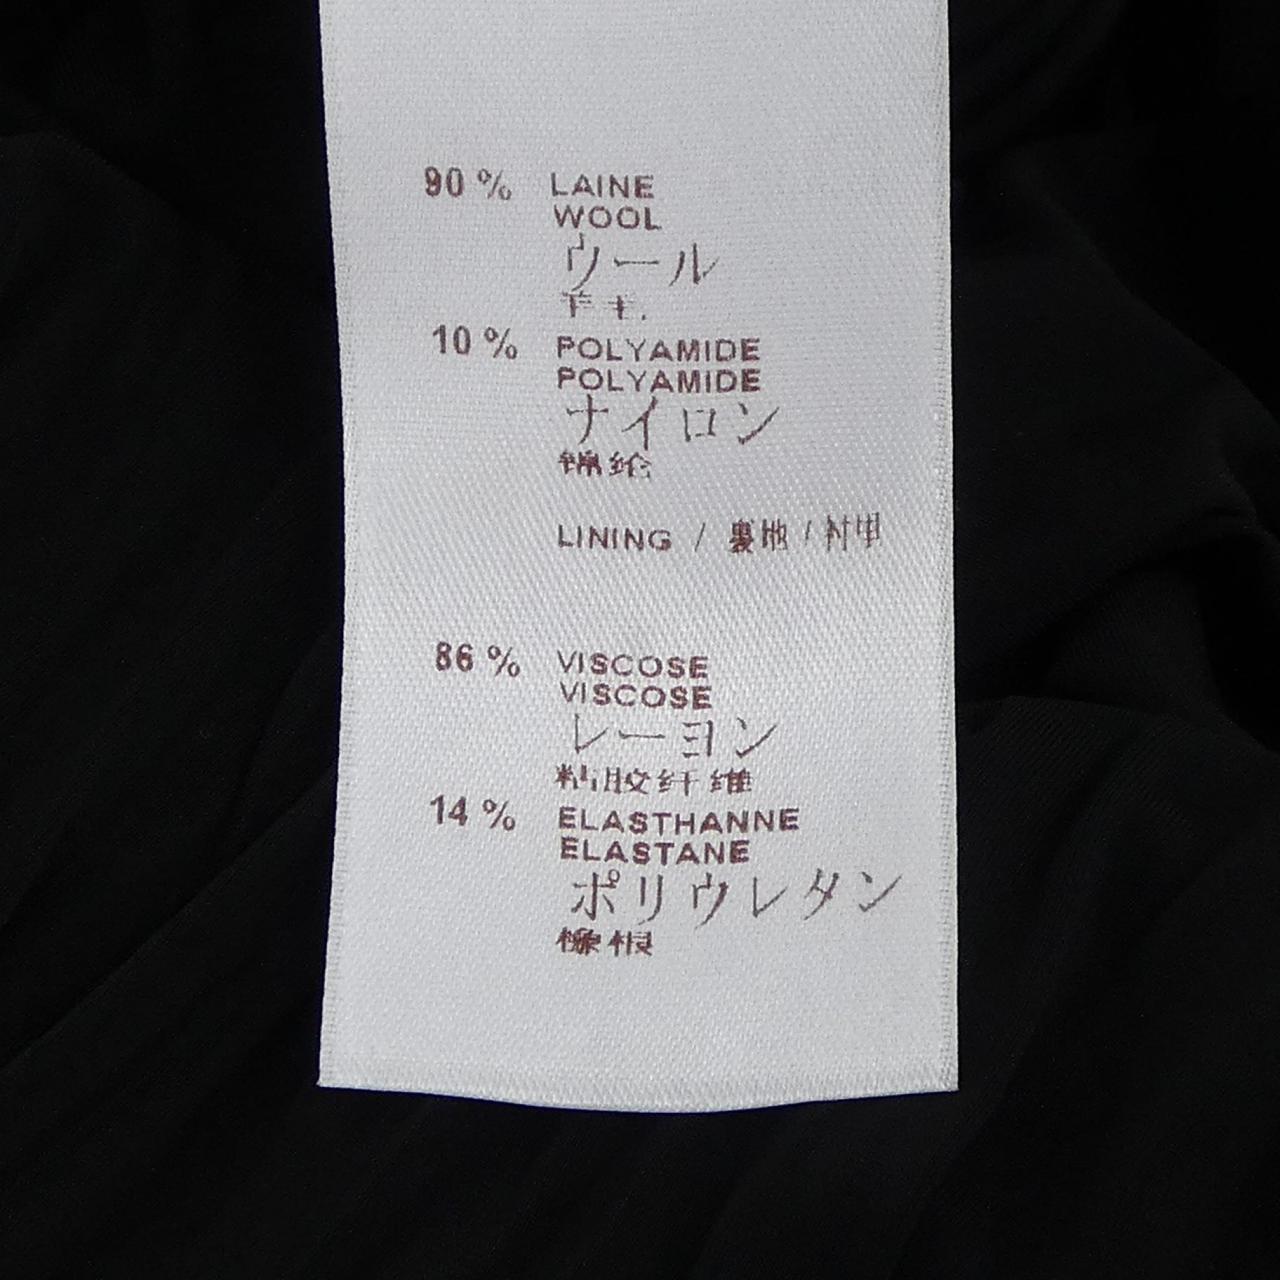 90 % LAINE
WOOL
ウール
羊毛
10 % POLYAMIDE
POLYAMIDE
ナイロン
锦纶
LINING / 裏地 / 衬里
86 % VISCOSE
VISCOSE
レーヨン
粘胶纤维
14 % ELASTHANNE
ELASTANE
ポリウレタン